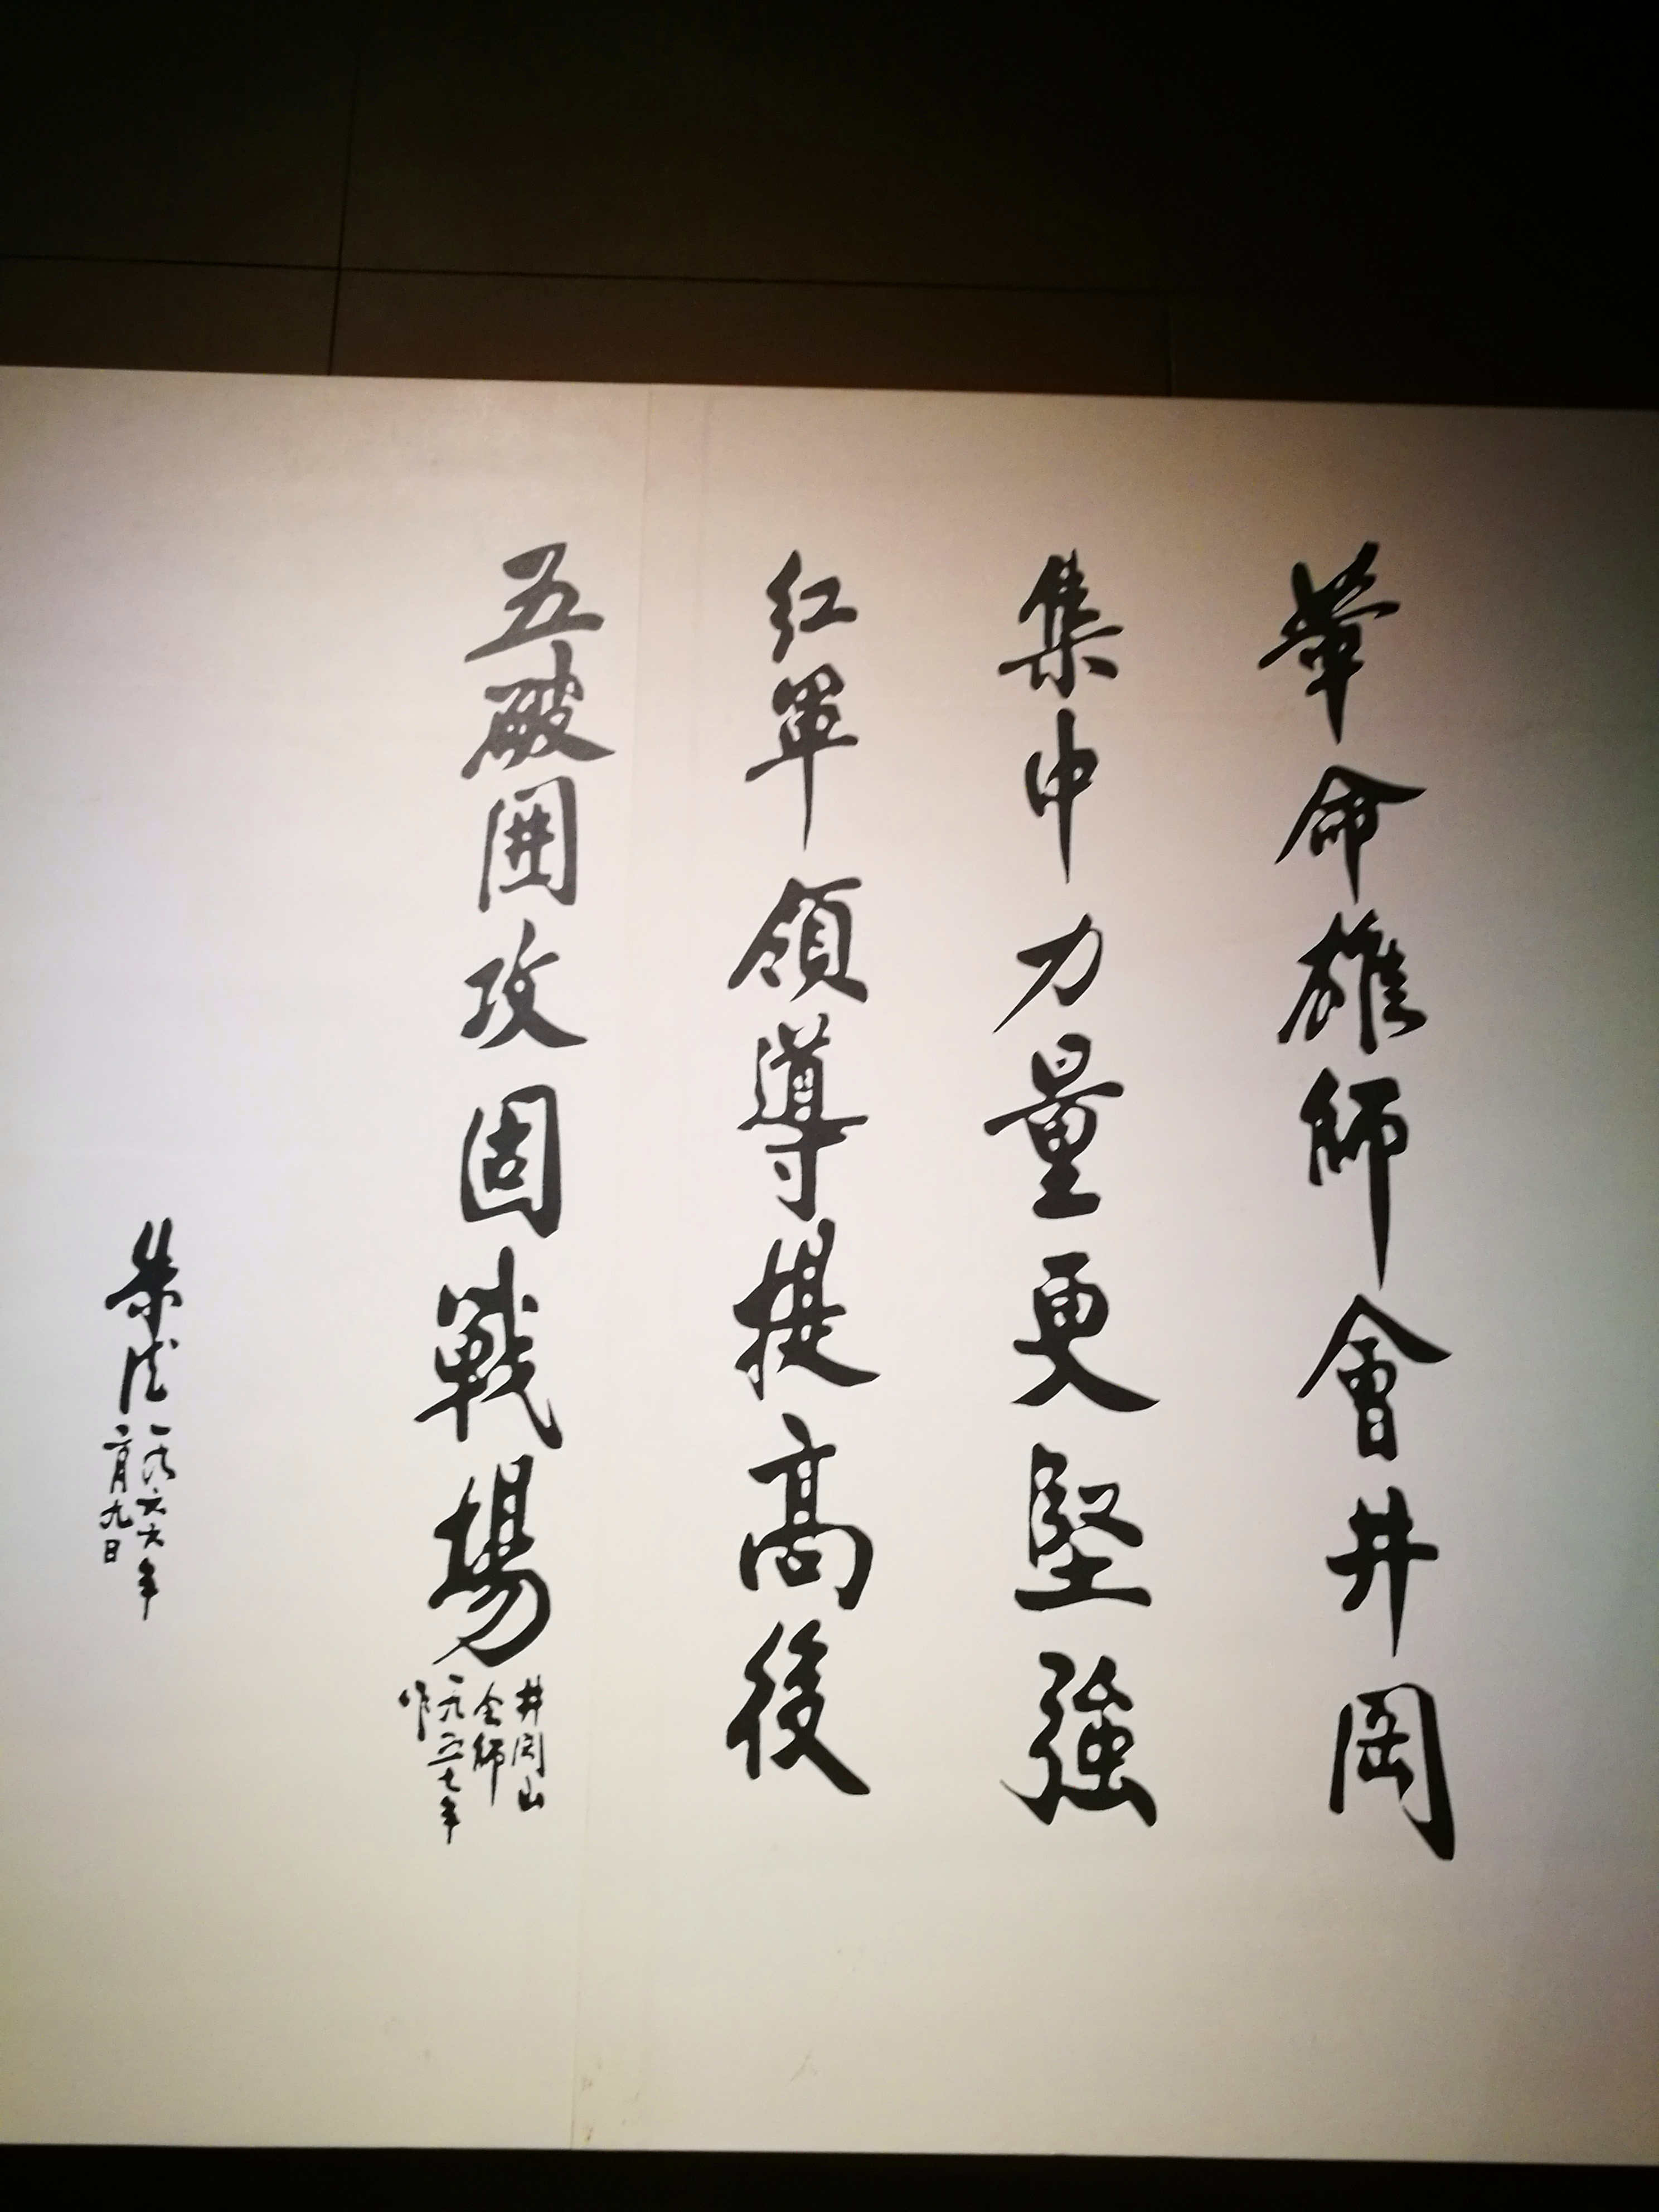 革命雄師會井岡
集中力量更堅強
红軍領導提高後
五破囲攻固戰場
井冈山
会師
一九五七年
作
朱德
一九六六年
二月九日